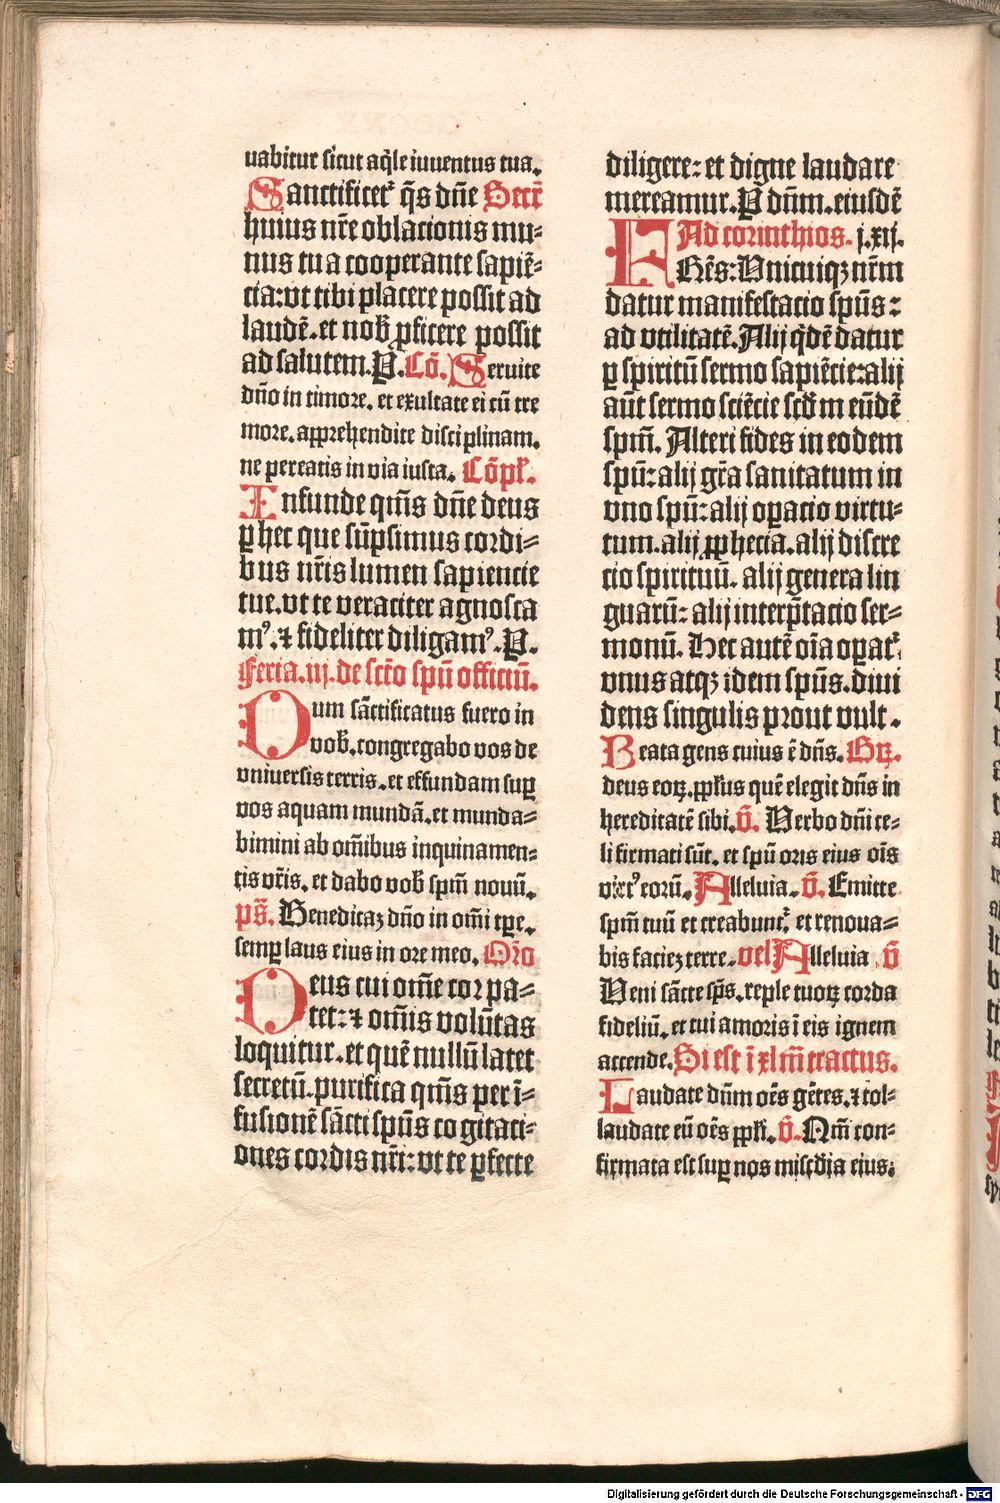 uabitur sicut aq̃le iuuentus tua.
Sanctificet᷑ q̃s dn̄e Secr̄
huius nr̄e oblacionis mu⸗
nus tua cooperante sapiē⸗
cia: vt tibi placere possit ad
laudē. et nob̄ ꝓficere possit
ad salutem. P. Cō. Seruite
dn̄o in timore. et exultate ei cū tre
more. apprehendite disciplinam.
ne pereatis in via iusta. Cōpl̄.
Infunde qm̄s dn̄e deus
ꝑ hec que sūpsimus cordi⸗
bus nr̄is lumen sapiencie
tue. vt te veraciter agnosca
mꝰ. ⁊ fideliter diligamꝰ. P.
Feria. iij. de sct̄o spū officiū.
Dum sāctificatus fuero in
vob̄. congregabo vos de
vniuersis terris. et effundam suꝑ
vos aquam mundā. et munda⸗
bimini ab om̄ibus inquinamen⸗
tis vr̄is. et dabo vob̄ spm̄ nouū.
ps̄. Benedicaꝫ dn̄o in om̄i tꝑe.
semꝑ laus eius in ore meo. Or̄o
Deus cui om̄e cor pa⸗
tet: ⁊ om̄is volūtas
loquitur. et quē nullū latet
secretū. purifica qm̄s per ī⸗
fusionē sācti spūs cogitaci⸗
ones cordis nr̄i: vt te ꝑfecte
diligere: et digne laudare
mereamur. P dn̄m. eiusdē
Ad corinthios. j. xij.
FRēs: Vnicuiqꝫ nr̄m
datur manifestacio spūs:
ad vtilitatē. Alij q̇dē datur
ꝑ spiritū sermo sapiēcie: alij
aūt sermo sciēcie scd̄m eūdē
spm̄. Alteri fides in eodem
spū: alij gr̄a sanitatum in
vno spū: alij oꝑacio virtu⸗
tum. alij ꝓphecia. alij discre
cio spirituū. alij genera lin
guarū: alij interp̄tacio ser⸗
monū. Hec autē oīa oꝑat᷑
vnus atqꝫ idem spūs. diui
dens singulis prout vult.
Beata gens cuius ē dn̄s. Gr̄.
deus eoꝝ. ppl̄us quē elegit dn̄s in
hereditatē sibi. V̄. Verbo dn̄i ce⸗
li firmati sūt. et spū oris eius oīs
v̇tꝰ eorū. Alleluia. V̄. Emitte
spm̄ tuū et creabunt᷑. et renoua⸗
bis facieꝫ terre. vel Alleluia. V̄
Veni sācte sp̄s. reple tuoꝝ corda
fideliū. et tui amoris ī eis ignem
accende. Si est ī xlm̄ tractus.
Laudate dn̄m oēs gētes. ⁊ col⸗
laudate eū oēs ppl̄i. V̄. Qm̄ con⸗
firmata est suꝑ nos mis̄cdia eius:
Digitalisierung gefördert durch die Deutsche Forschungsgemeinschaft - DFG